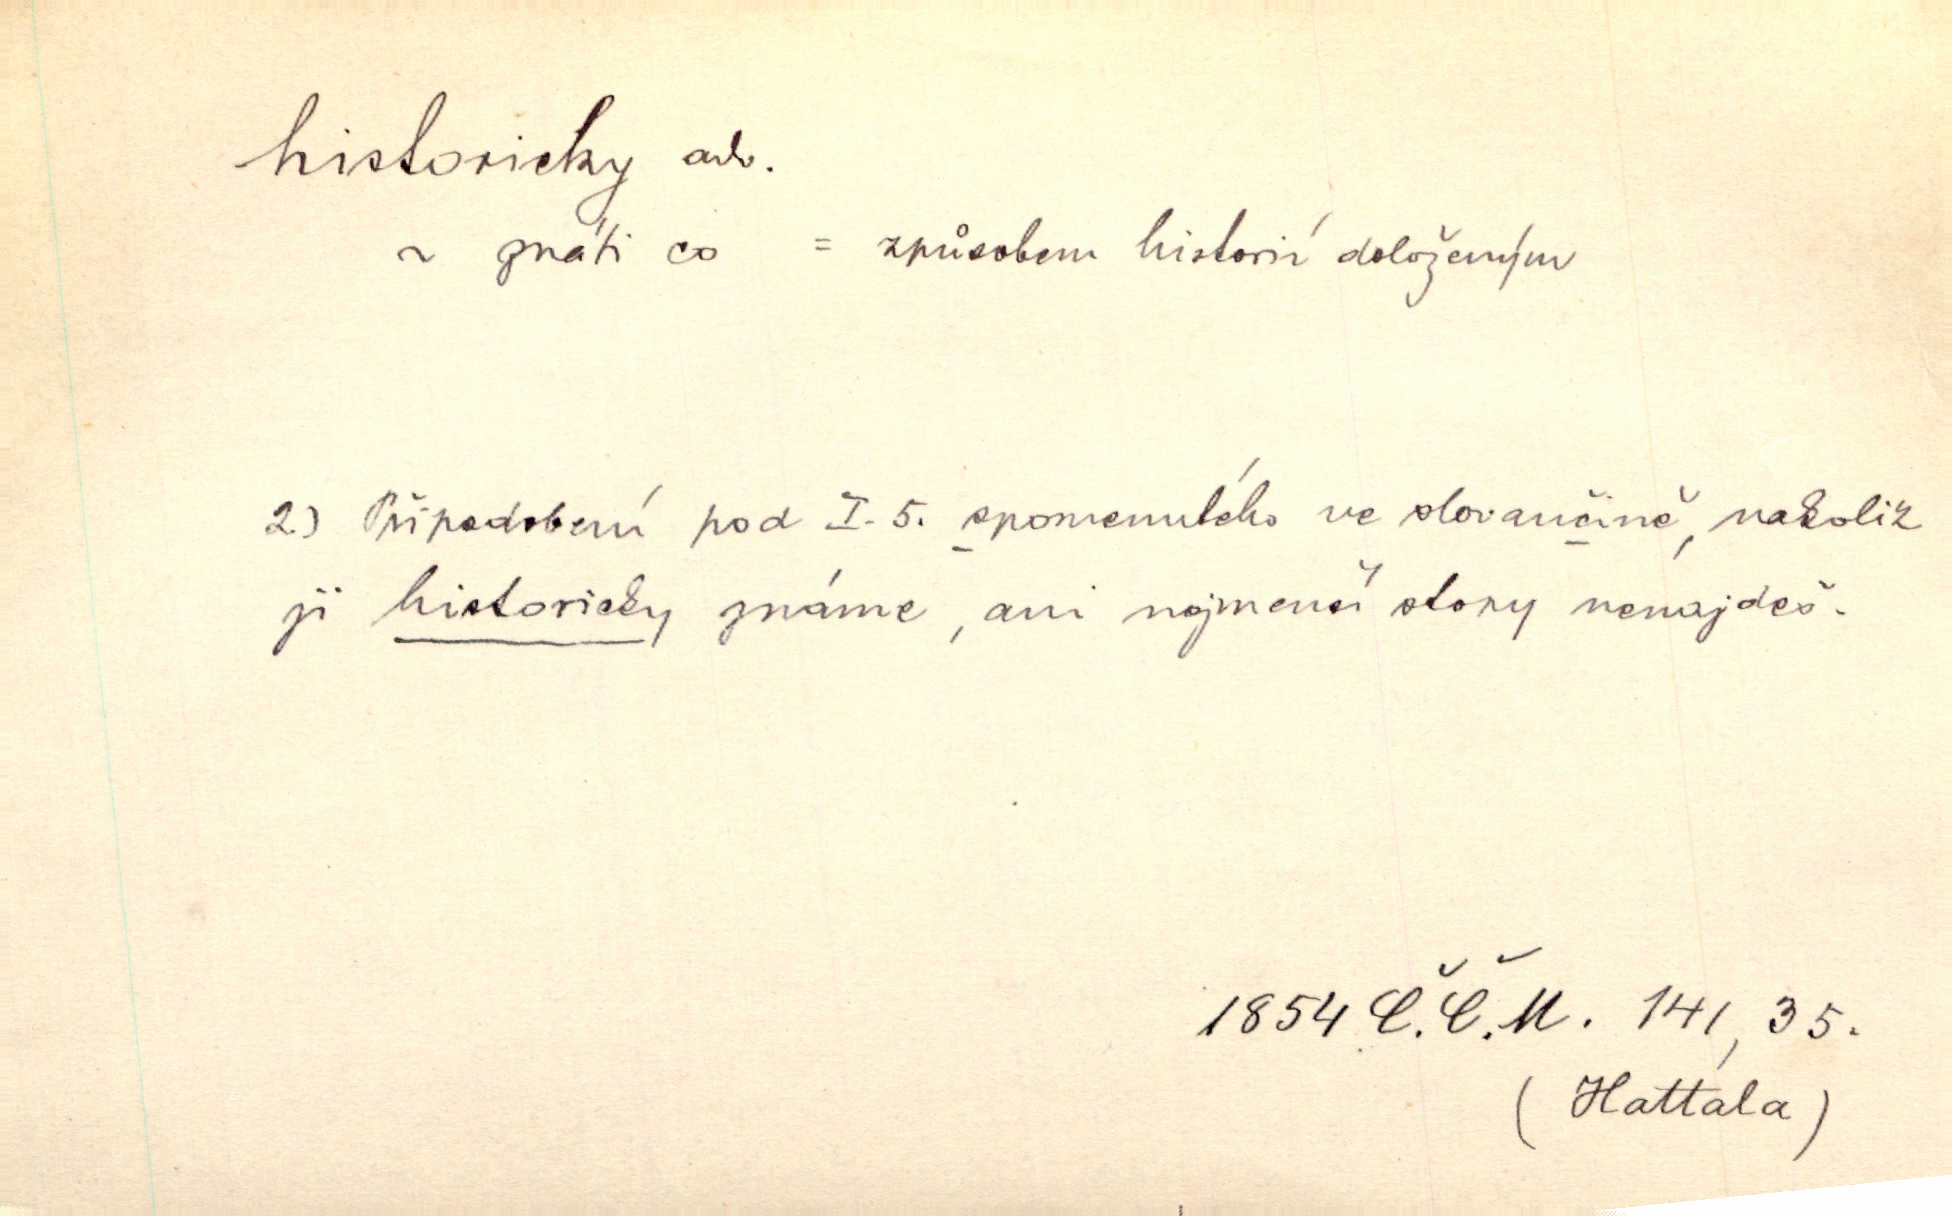 historicky adv.
~ znáti co = způsobem historií doloženým
2) Připodobení pod I. 5. spomenutého ve slovančině, nakolik
ji historicky známe, ani nejmenší stopy nenajdeš.
1854 Č.Č.M. 141, 35.
(Hattala)